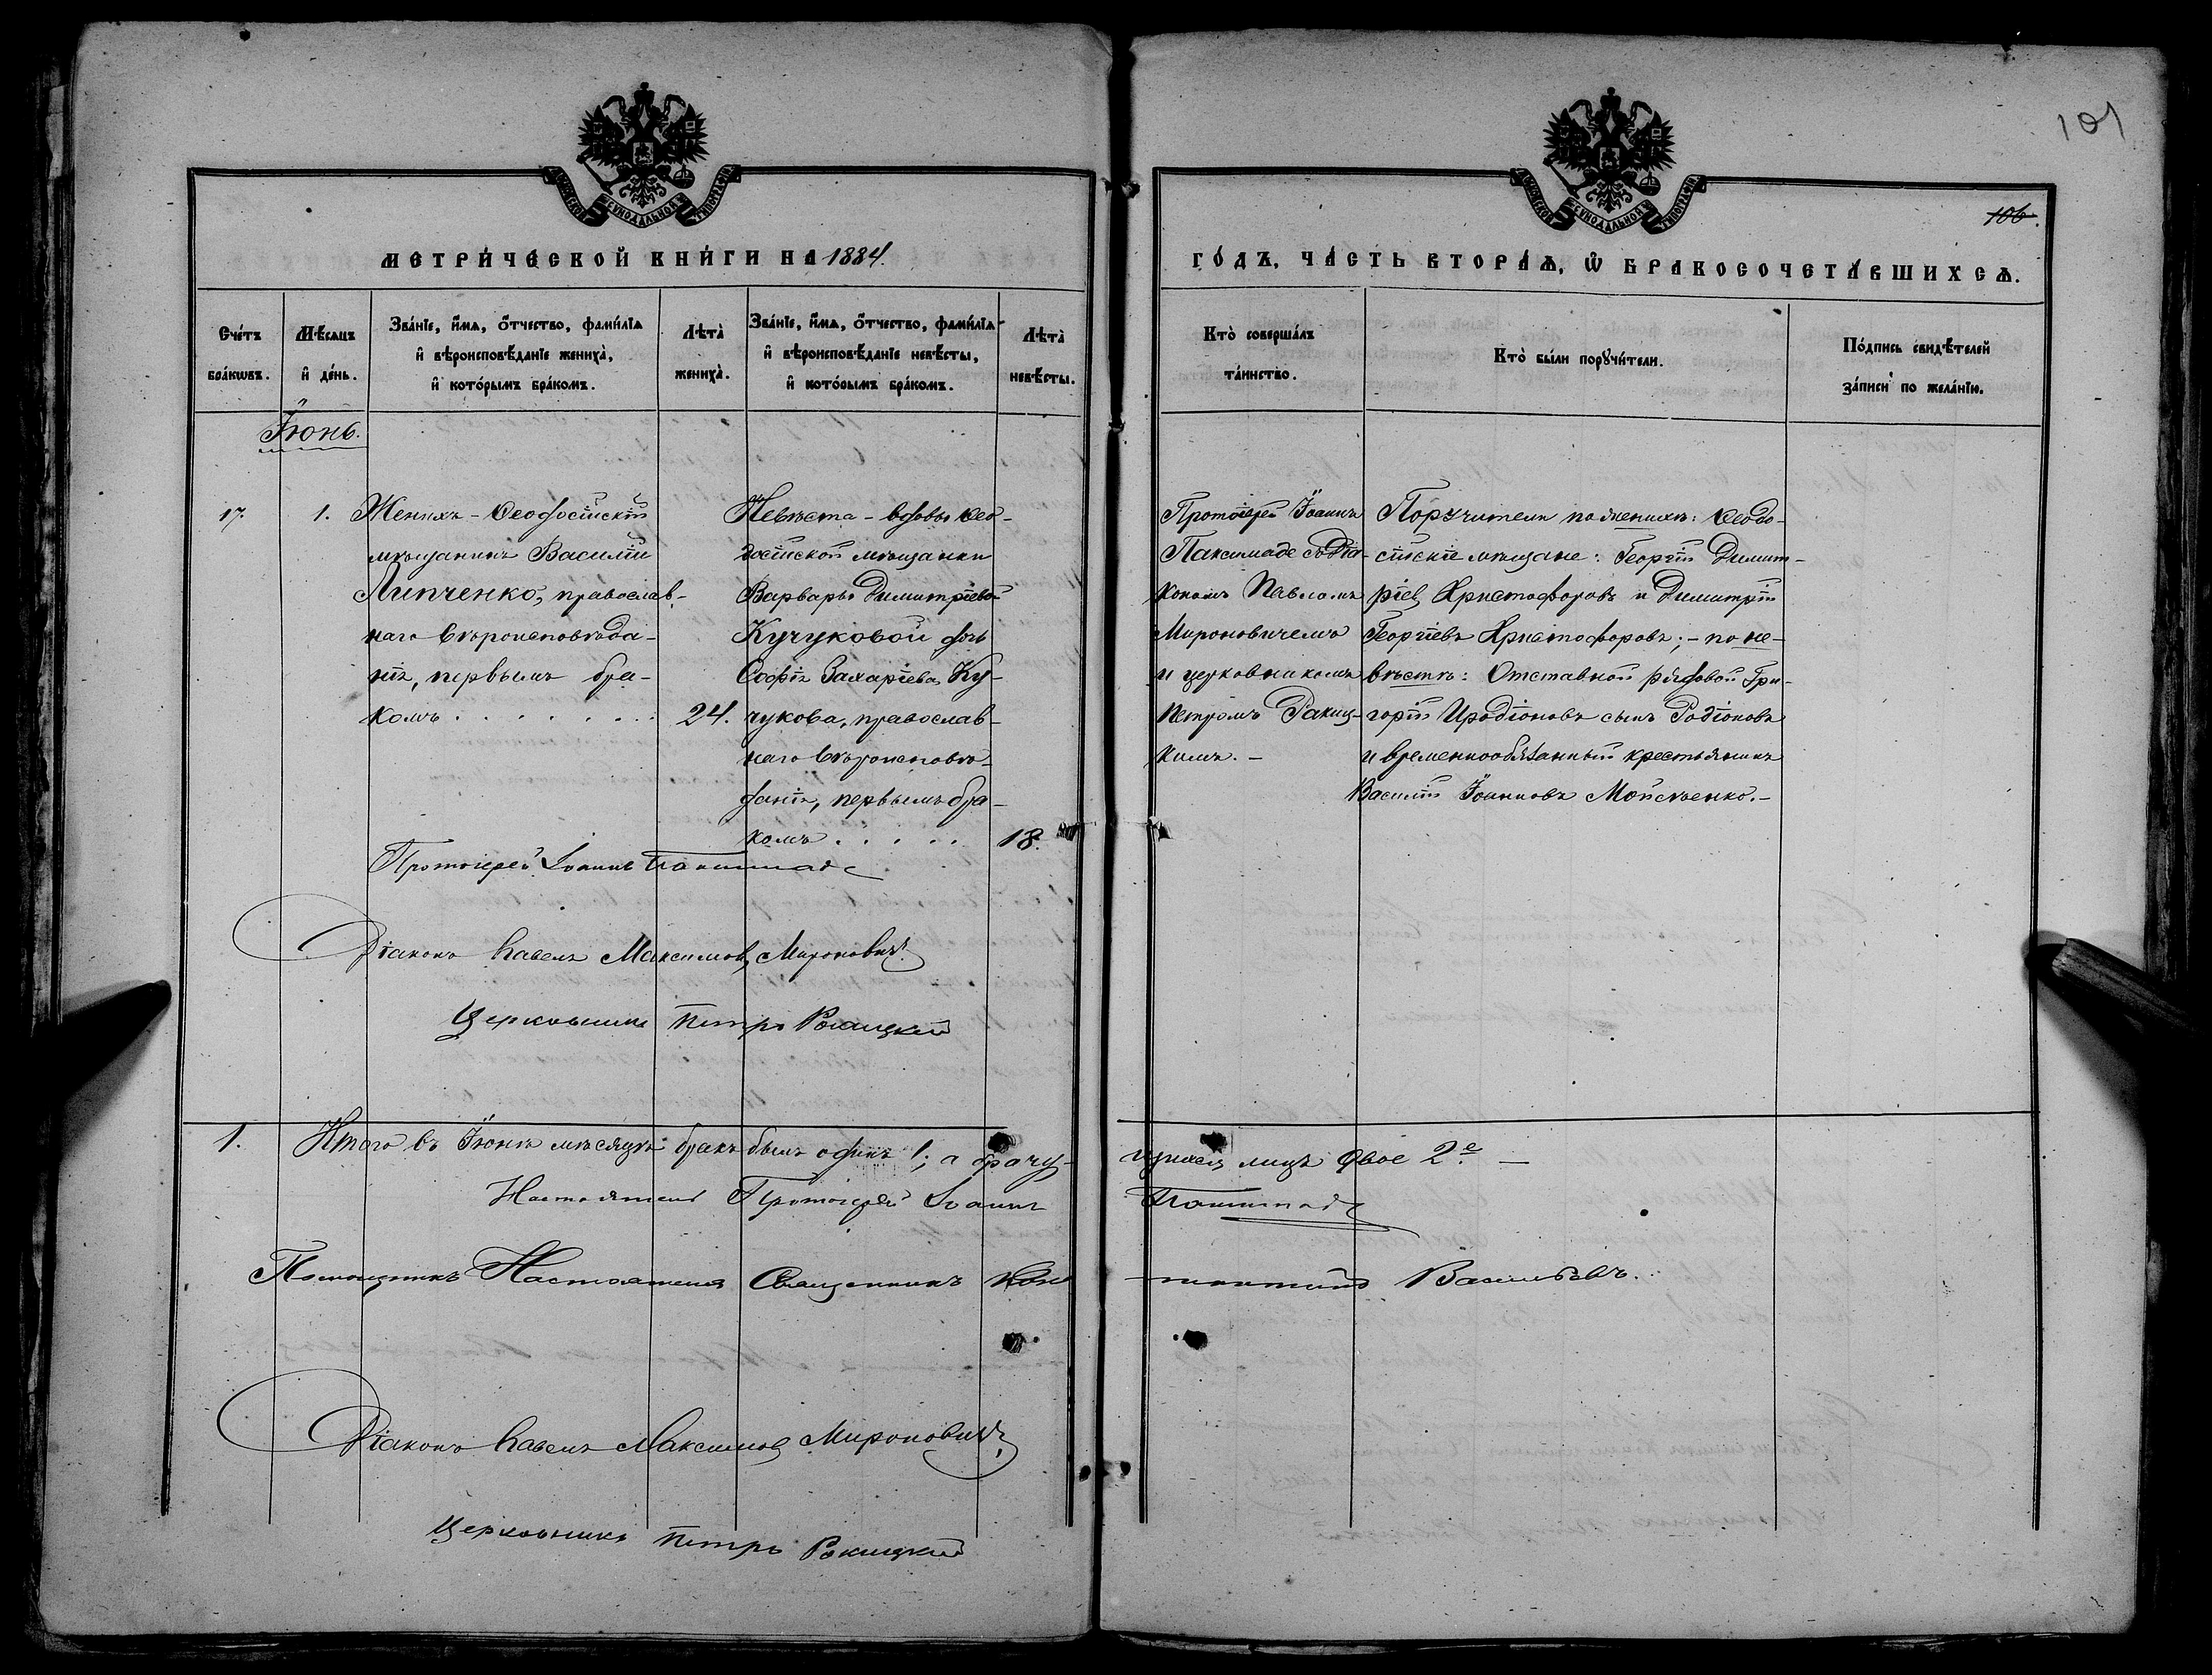 101
106.
МОСКОВСКОЙ СѴНОДАЛЬНОЙ ТИПОГРАФІИ
МОСКОВСКОЙ СѴНОДАЛЬНОЙ ТИПОГРАФІИ
МЕТРИ́ЧЕСКОЙ КНИ́ГИ НА 1884.
ГО́ДЪ, ЧА́СТЬ ВТОРА́Ѧ, Ѽ БРАКОСОЧЕТА́ВШИХСѦ.
Сче́тъ бра́кѡвъ.
Мѣ́сѧцъ и҆ де́нь.
Зва́нїе, и҆́мѧ, ѻ҆́тчество, фами́лїѧ и҆ вѣроисповѣ́данїе жениха̀, и҆ кото́рымъ бра́комъ.
Лѣта̀ жениха̀.
Зва́нїе, и҆́мѧ, ѻ҆́тчество, фами́лїѧ и҆ вѣроисповѣ́данїе невѣ́сты, и҆ кото́рымъ бра́комъ.
Лѣта̀ невѣ́сты.
Кто̀ соверша́лъ та́инство.
Кто̀ бы́ли порꙋчи́тели.
По́дпись свидѣ́телей за́писи по жела́нїю.
Іюнь.
17.
1.
Женихъ - Ѳеодосійскій
мѣщанинъ Василій
Липченко, православ-
наго вѣроисповѣда-
нія, первымъ бра-
комъ . . . . . . . .
24.
Невѣста - вдовы Ѳео-
досійской мѣщанки
Варвары Димитріевой
Кучуковой дочь
Софія Захаріева Ку-
чукова, православ-
наго вѣроисповѣ-
данія, первымъ бра-
комъ . . . . .
18.
Протоіерей Іоаннъ
Паксимаде съ Діа-
кономъ Павломъ
Мироновичемъ
и церковникомъ
Петромъ Ракиц-
кимъ. -
Поручители по женихѣ: Ѳеодо-
сійскіе мѣщане: Георгій Димит-
ріевъ Христофоровъ и Димитрій
Георгіевъ Христофоровъ; - по не-
вѣстѣ: Отставной рядовой Гри-
горій Иродіоновъ сынъ Родіоновъ
и временнообязанный крестьянинъ
Василій Іоанновъ Мойсѣенко. -
Протоіерей Іоаннъ Паксимаде
Діаконъ Павелъ Максимовъ Мироновичъ
Церковникъ Петръ Ракицкій
1.
Итого въ Іюнѣ мѣсяцѣ бракъ былъ одинъ 1; а брачу-
щихся лицъ двое 2.е -
Настоятель Протоіерей Іоаннъ Паксимаде
Помощникъ Настоятеля Священникъ Константинъ Васильевъ.
Діаконъ Павелъ Максимовъ Мироновичъ
Церковникъ Петръ Ракицкій